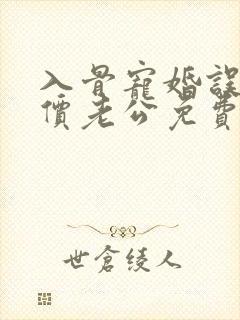 入骨寵婚誤
價老公免費
世倉綾人